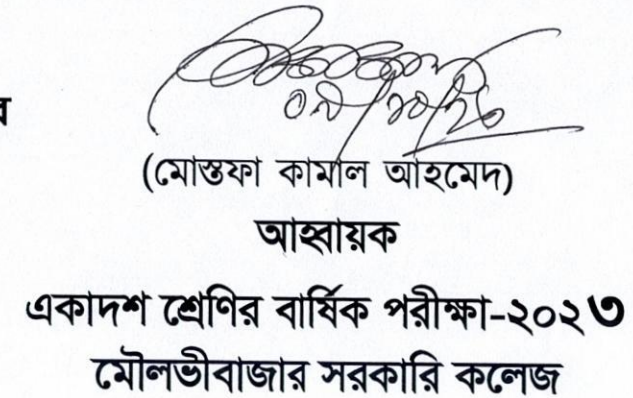 (মোস্তফা কামাল আহমেদ)
আহ্বায়ক
একাদশ শ্রেণির বার্ষিক পরীক্ষা-২০২৩
মৌলভীবাজার সরকারি কলেজ